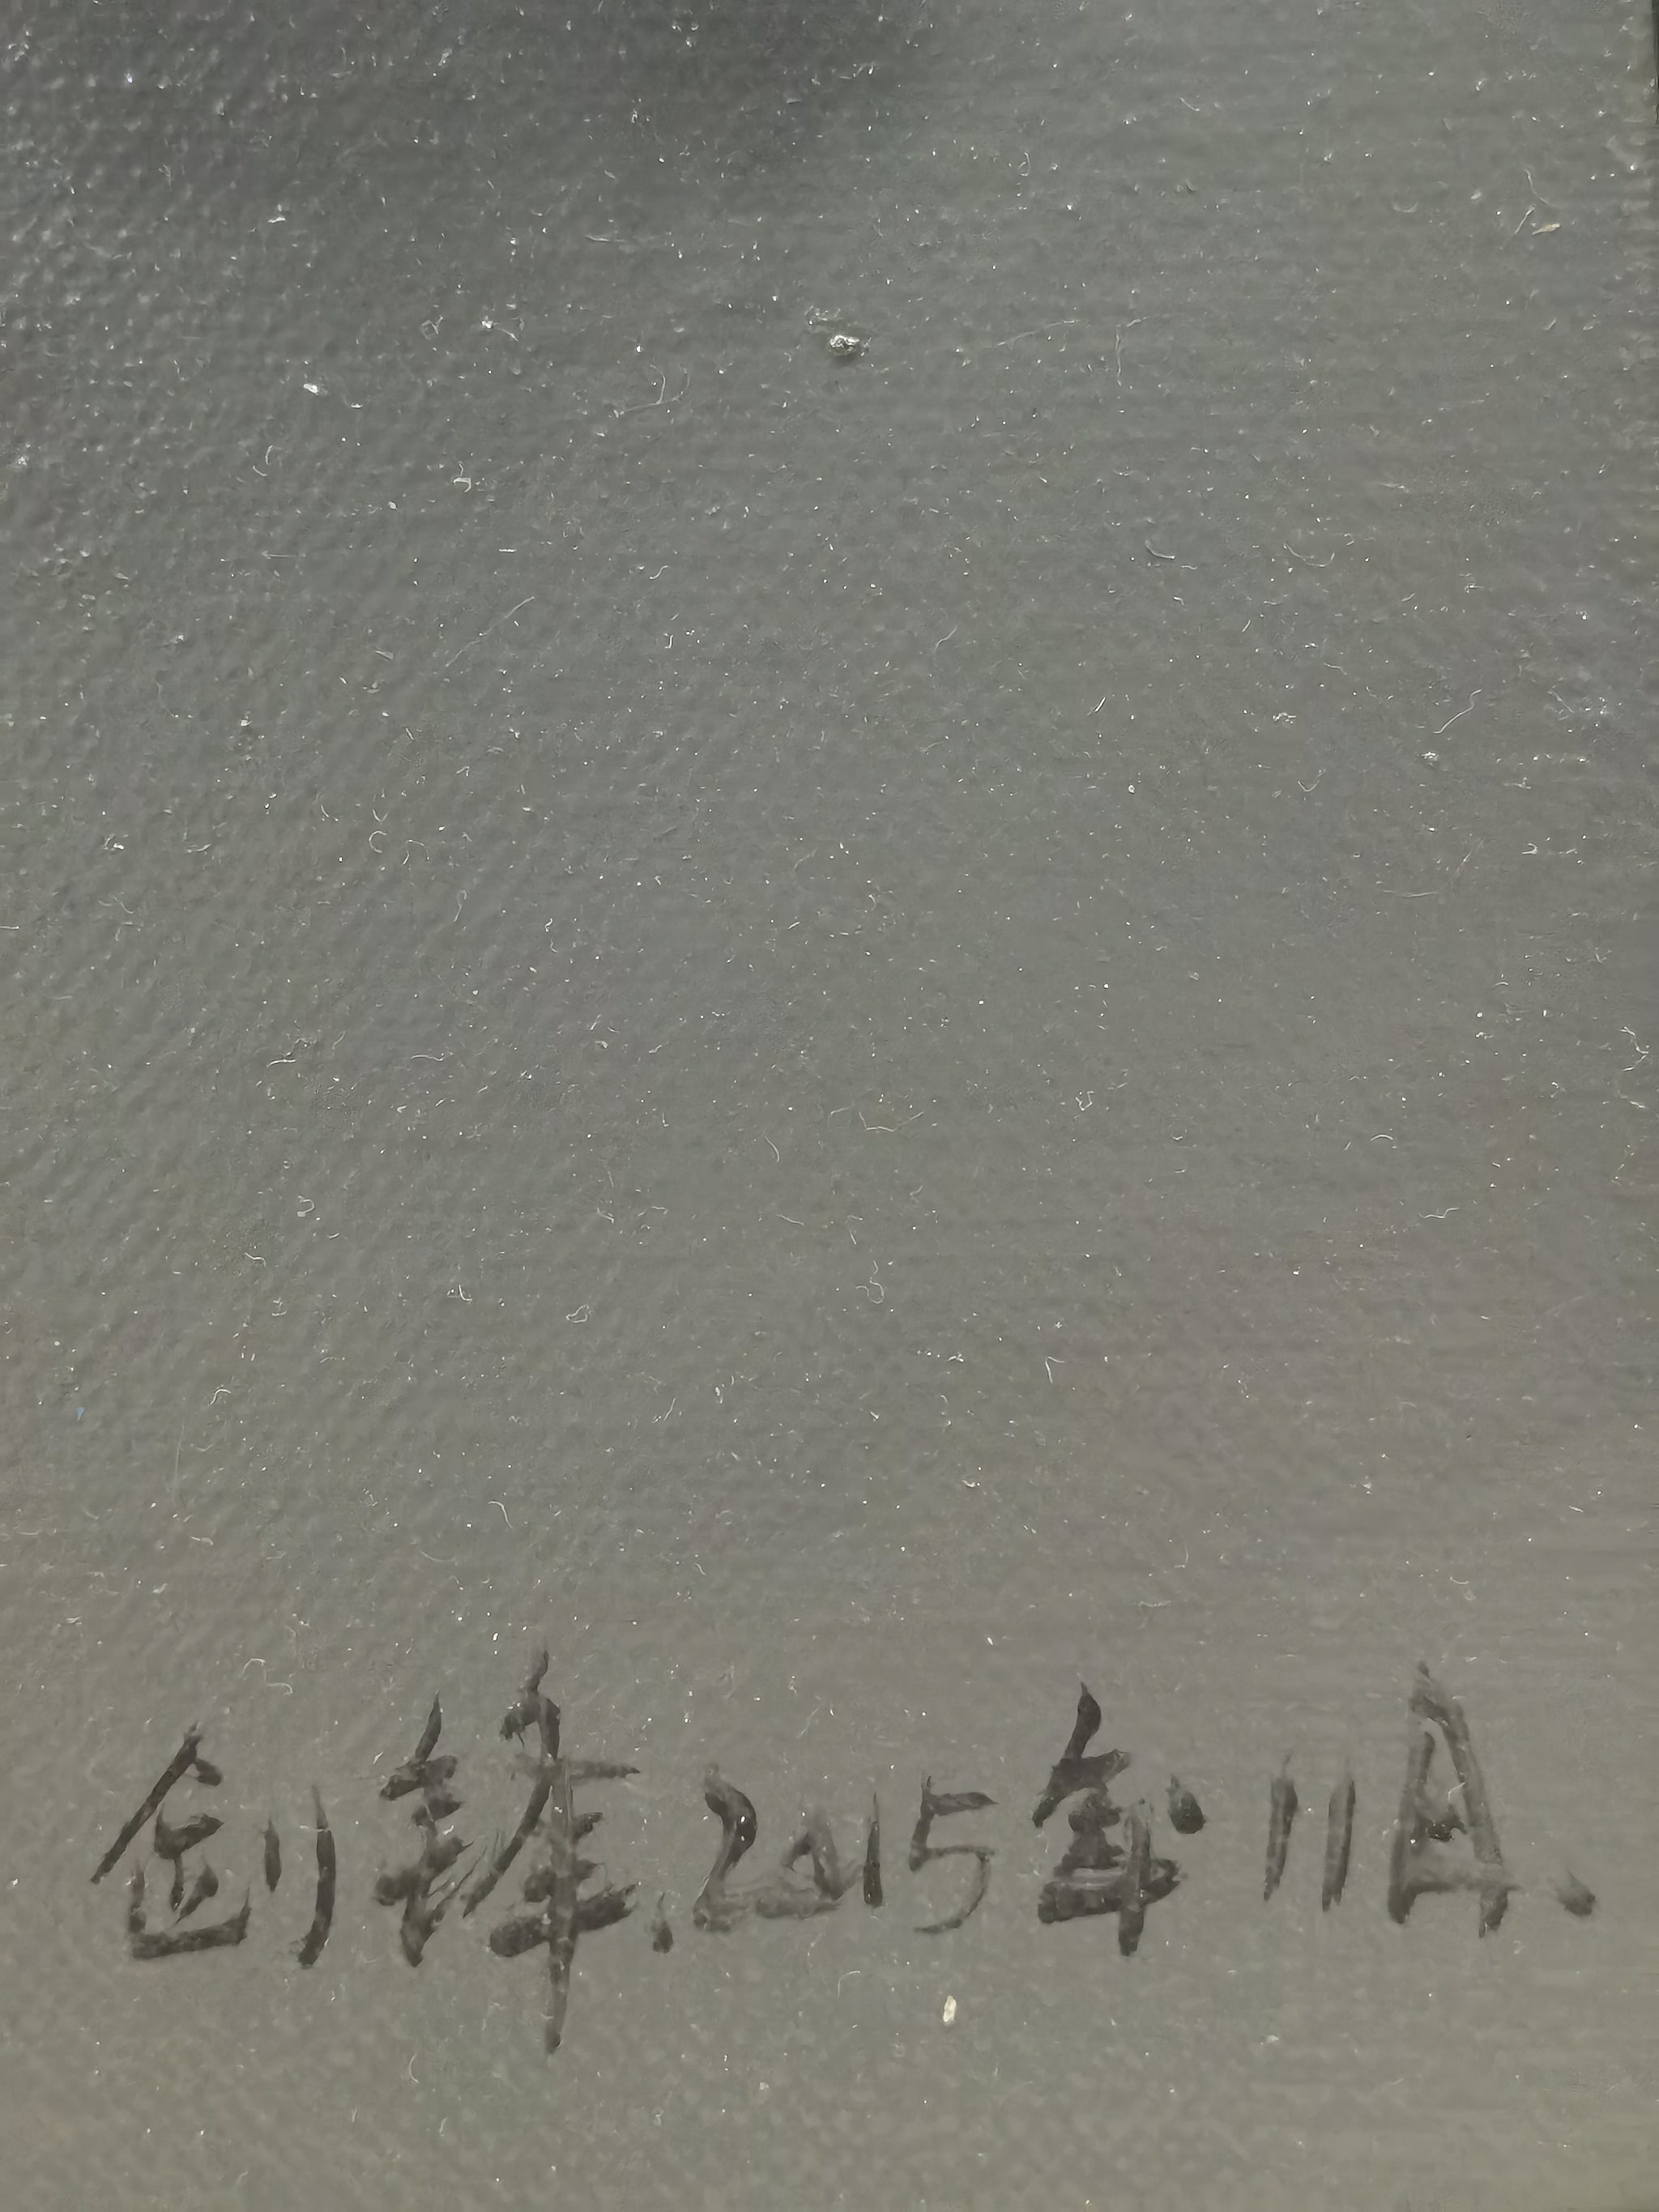 剑锋.2015年·11月.